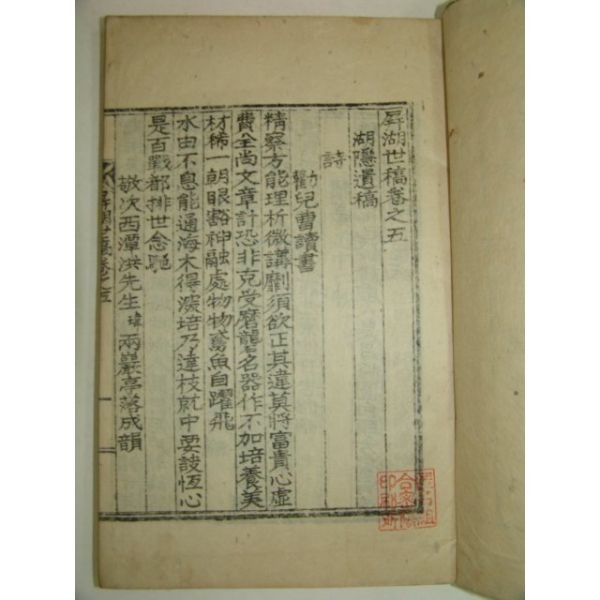 屛湖世稿卷之五
湖隱遺稿
詩
勸兒曹讀書
精察方能理析微講劘須欲正其違莫將富貴心虛
費全尚文章計恐非克受磨礱名器作不加培養美
材稀一朝眼豁神融處物物鳶魚自躍飛
水由不息能通海木得深培乃達枝就中要說恆心
是百戰都排世念
敬次西潭洪先生瑋兩巖亭落成韻